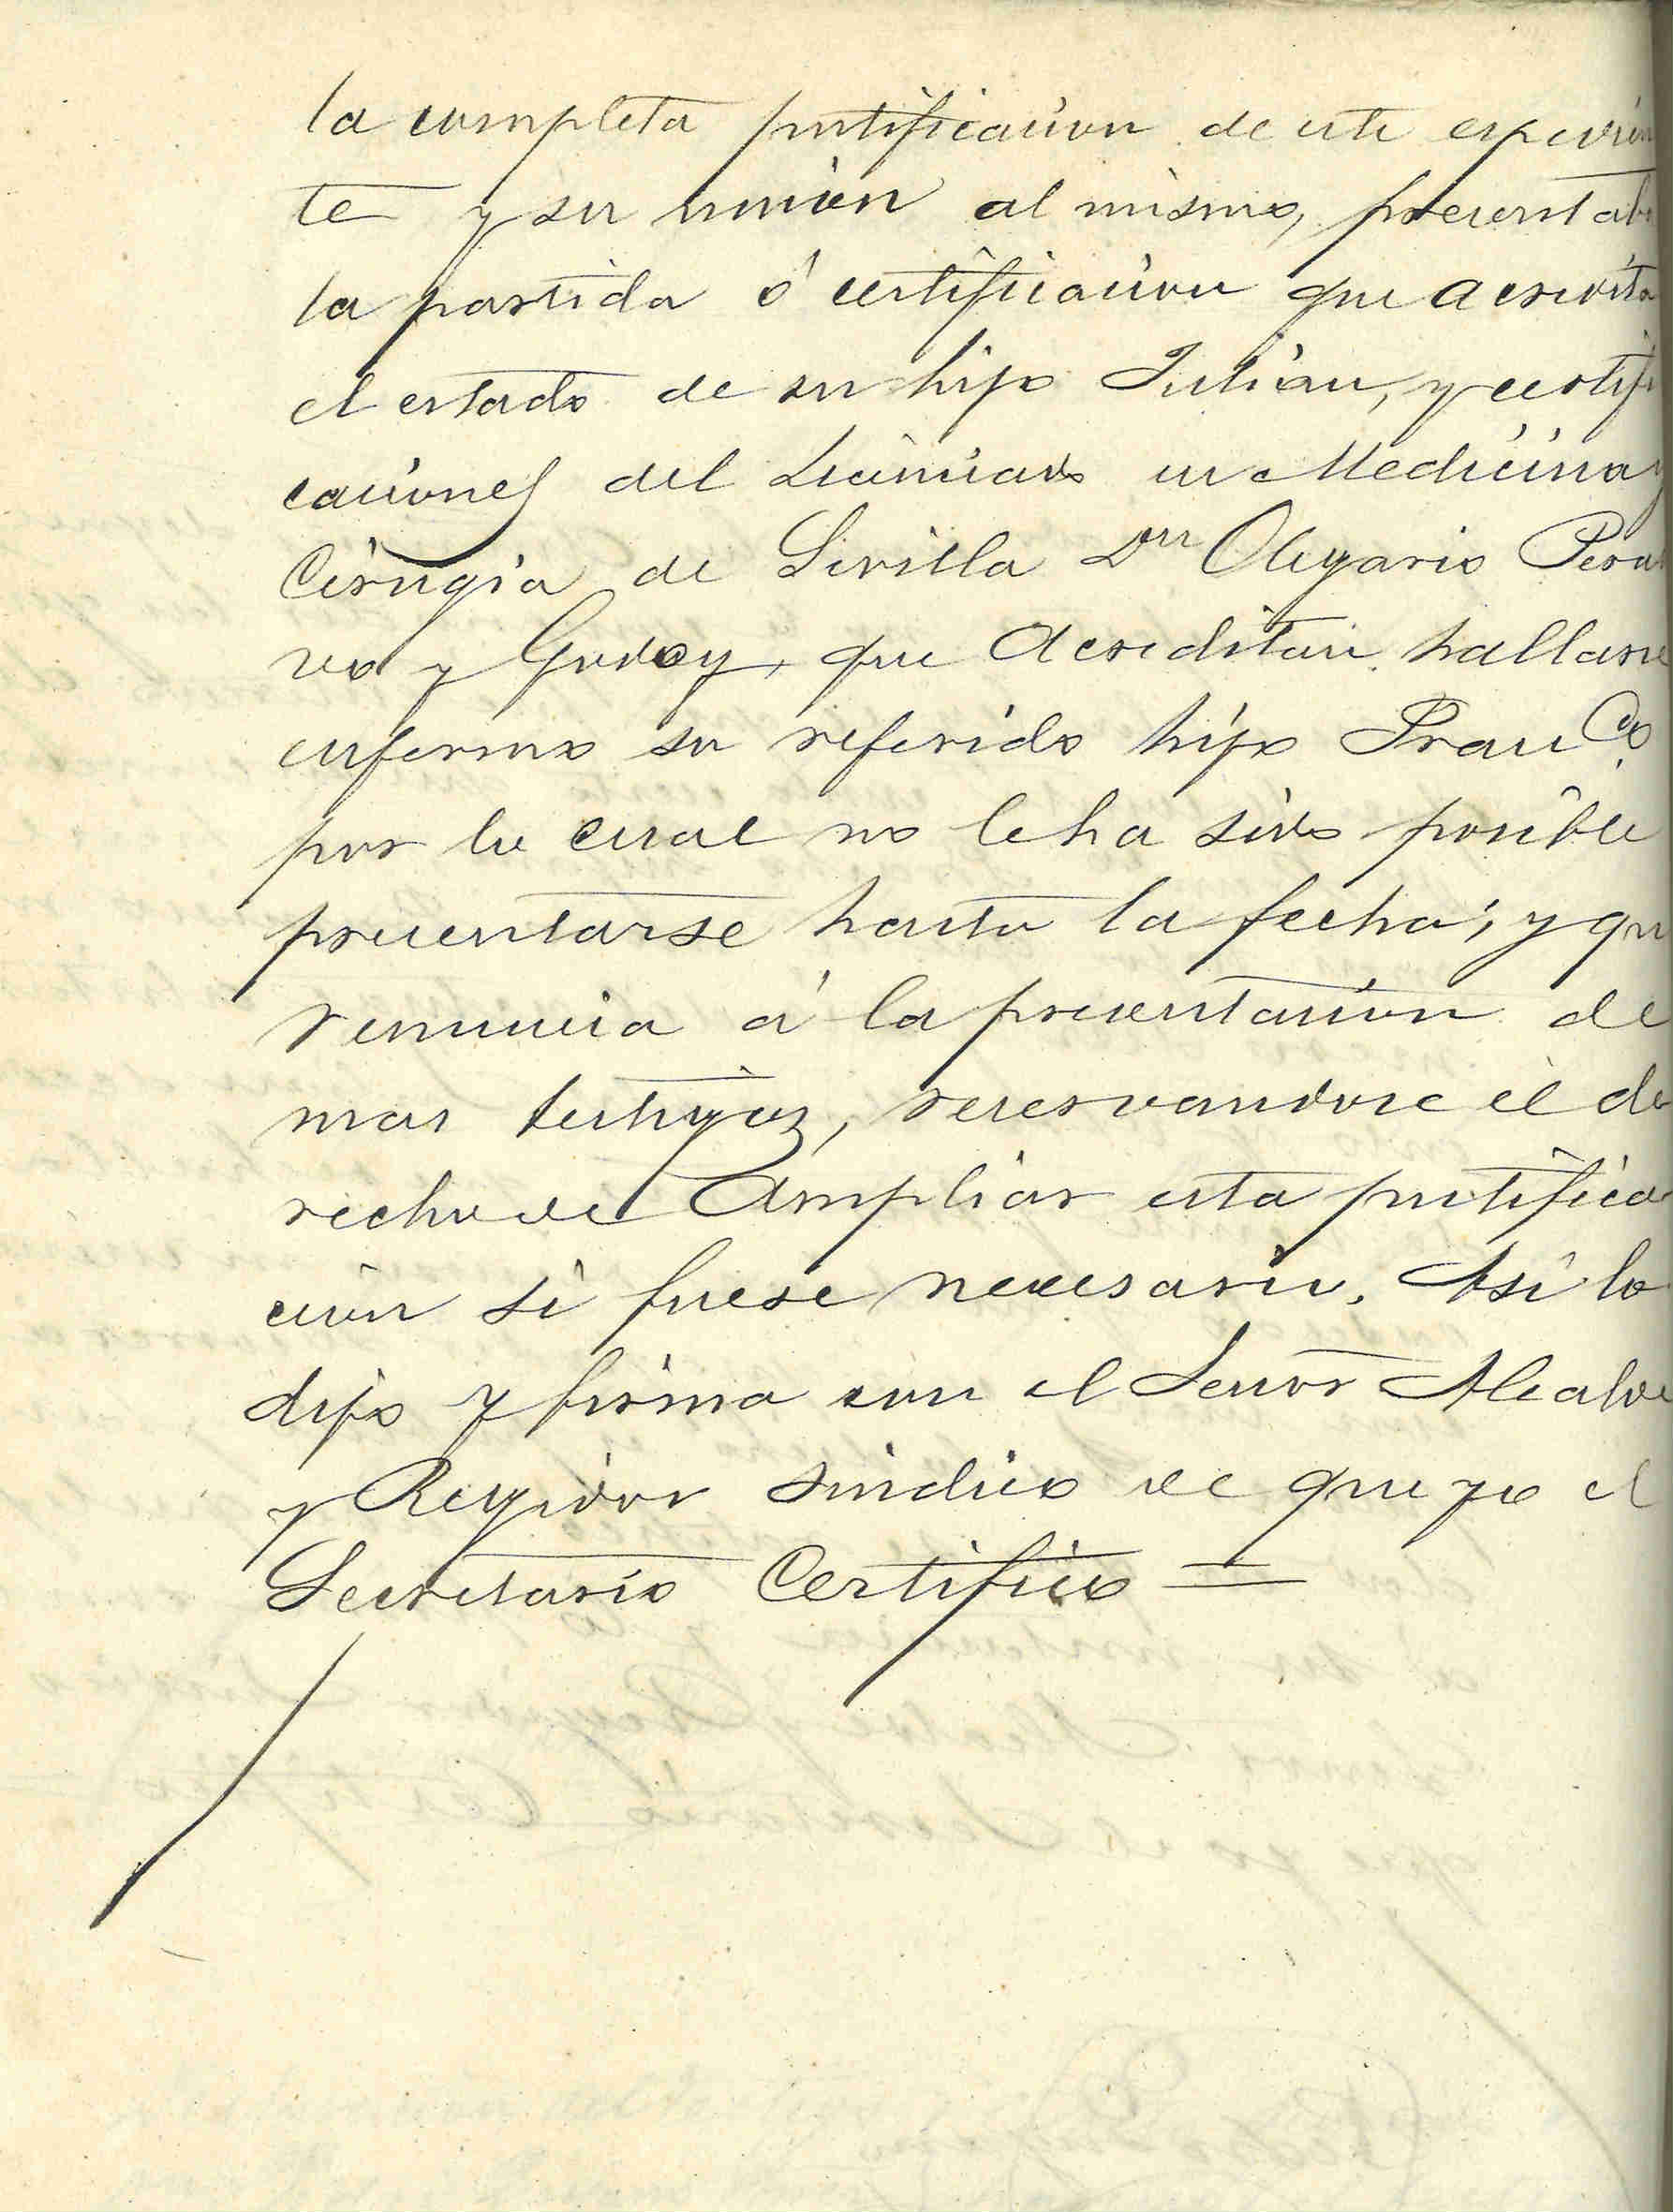 la completa justificacion de este espedien
te y su union al mismo, presentaba
la partida ó certificacion que acredita
el estado de su hijo Julian, y certifi
caciones del Licenciado en Medicina y
Cirugia de Sevilla Dn Olegario
y Godoy, que acreditan hallarse
enfermo su referido hijo Franco
por lo cual no le ha sido posible
presentarse hasta la fecha; y que
renuncia á la presentacion de
mas testigos, reservandose el de
recho de Ampliar esta justifica
cion si fuese necesario. Asi lo
dijo y firma con el Señor Alcalde
y Regidor sindico de que yo el
Secretario Certifico =